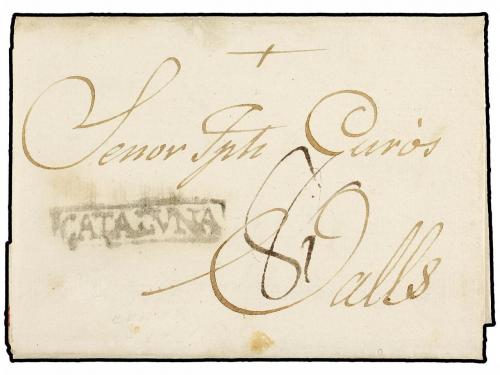 +
Senor Jph Curós
CATALVNA
8
Valls